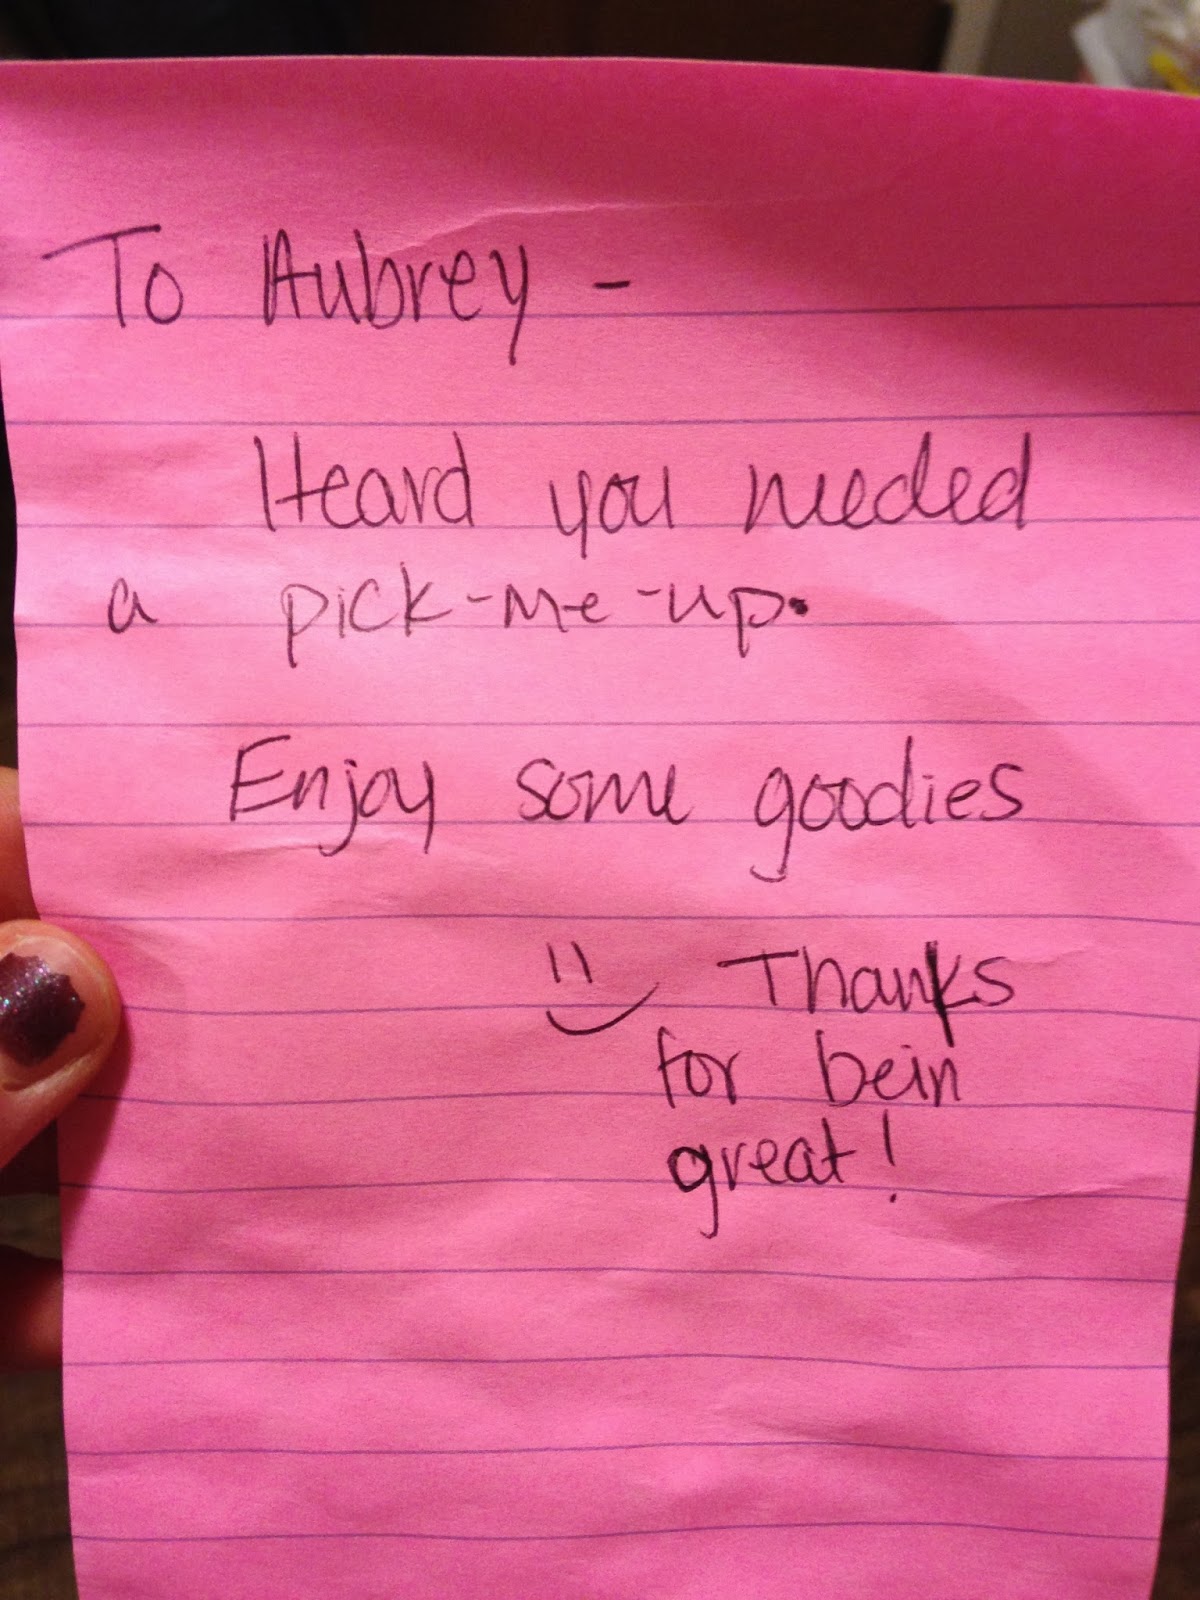 To Aubrey -
Heard you needed
a pick-me-up.
Enjoy some goodies
Thanks
for bein
great!